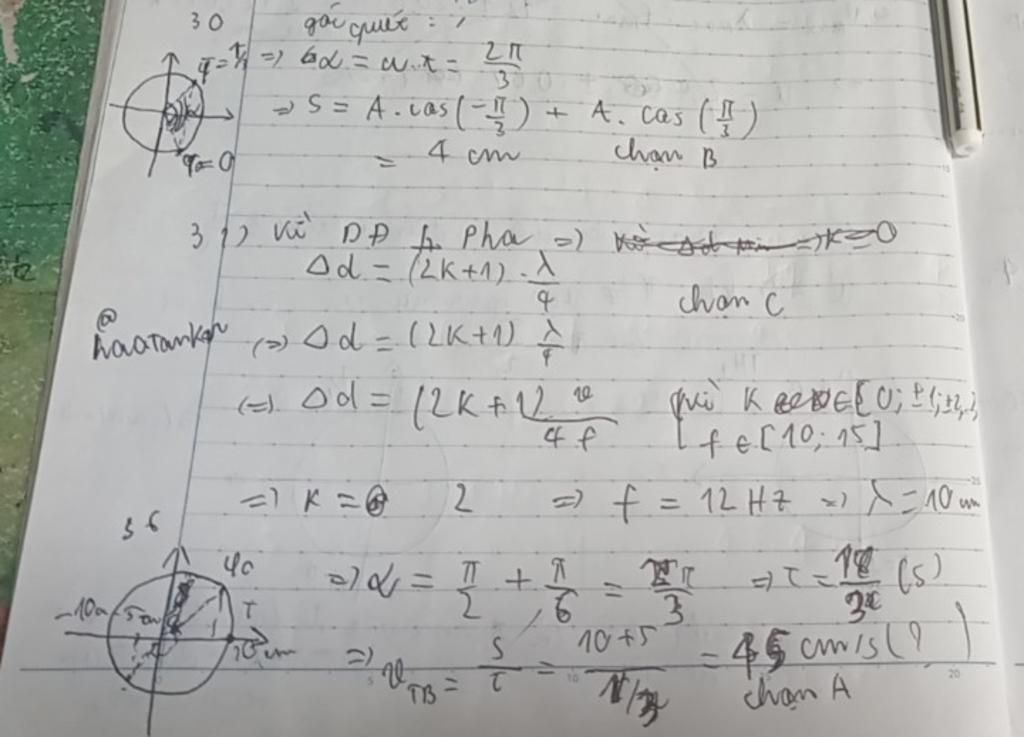 30 góc quét :
φ = π/ => Δα = ω.t = 2π/3
=> S = A.cos(-π/3) + A.cos(π/3)
φ = 0
= 4 cm chọn B
31) Vì DĐ Pha =>
Δd = (2K+1).λ/4
chọn C
@
haoatankan
(=) Δd = (2K+1) λ/4
(=) Δd = (2K+1) v/4f K ∈ [0; ±1; ±2,
f ∈ [10; 15]
=> K = 2 => f = 12 Hz => λ = 10 cm
36
φ0
=> α = π/2 + π/6 = π/3 => τ = (s)
-10 -5 cm
10 cm
=> vTB = S/τ = 10+5/1/3 = 45 cm/s (?)
chọn A